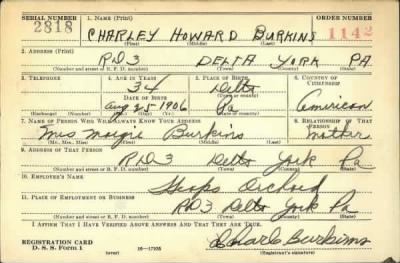 SERIAL NUMBER 1. NAME (Print) ORDER NUMBER
2818 CHARLEY HOWARD BURKINS 1142
(First) (Middle) (Last)
2. ADDRESS (Print)
RD3 DELTA YORK PA
(Number and street or R. F. D. number) (Town) (County) (State)
3. TELEPHONE 4. AGE IN YEARS 5. PLACE OF BIRTH 6. COUNTRY OF CITIZENSHIP
34 Delta
DATE OF BIRTH (Town or county)
Aug 25 1906 Pa American
(Exchange) (Number) (Mo.) (Day) (Yr.) (State or country)
7. NAME OF PERSON WHO WILL ALWAYS KNOW YOUR ADDRESS 8. RELATIONSHIP OF THAT PERSON
Mrs Margie Burkins Mother
(Mr., Mrs., Miss) (First) (Middle) (Last)
9. ADDRESS OF THAT PERSON
RD3 Delta York Pa
(Number and street or R. F. D. number) (Town) (County) (State)
10. EMPLOYER'S NAME
Heaps Orchard
11. PLACE OF EMPLOYMENT OR BUSINESS
RD3 Delta York Pa
(Number and street or R. F. D. number) (Town) (County) (State)
I AFFIRM THAT I HAVE VERIFIED ABOVE ANSWERS AND THAT THEY ARE TRUE.
REGISTRATION CARD
D. S. S. Form 1 16-17105 Burkins
(Registrant's signature)